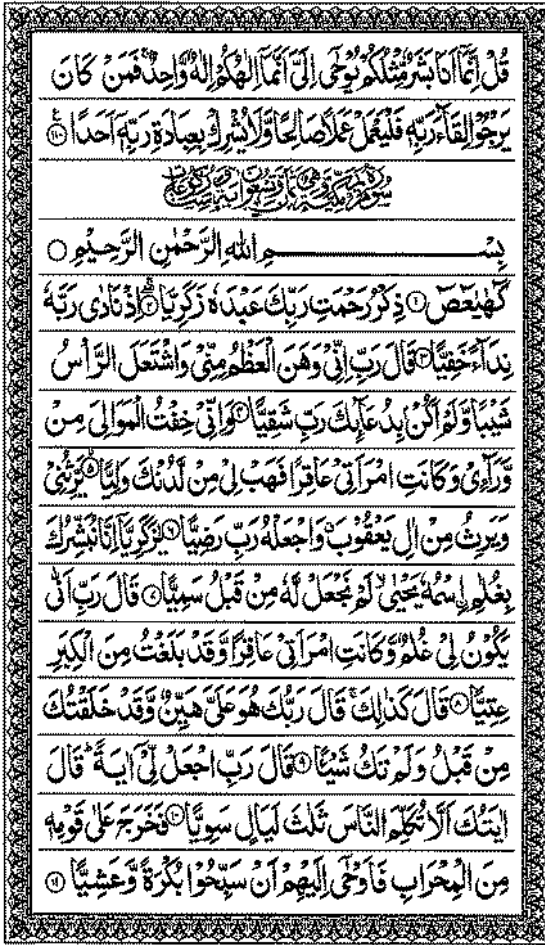 قُلْ اِنَّمَاۤ اَنَا بَشَرٌ مِّثْلُكُمْ یُوْحٰۤى اِلَیَّ اَنَّمَاۤ اِلٰهُكُمْ اِلٰهٌ وَّاحِدٌ ۚ فَمَنْ كَانَ
یَرْجُوْا لِقَآءَ رَبِّهٖ فَلْیَعْمَلْ عَمَلًا صَالِحًا وَّلَا یُشْرِكْ بِعِبَادَةِ رَبِّهٖۤ اَحَدًا ۝۱۱۰
بِسْمِ اللّٰهِ الرَّحْمٰنِ الرَّحِیْمِ ۝
كٓهٰیٰعٓصٓ ۝۱ ذِكْرُ رَحْمَتِ رَبِّكَ عَبْدَهٗ زَكَرِیَّا ۝۲ اِذْ نَادٰى رَبَّهٗ
نِدَآءً خَفِیًّا ۝۳ قَالَ رَبِّ اِنِّیْ وَهَنَ الْعَظْمُ مِنِّیْ وَاشْتَعَلَ الرَّاْسُ
شَیْبًا وَّلَمْ اَكُنْۢ بِدُعَآىِٕكَ رَبِّ شَقِیًّا ۝۴ وَاِنِّیْ خِفْتُ الْمَوَالِیَ مِنْ
وَّرَآءِیْ وَكَانَتِ امْرَاَتِیْ عَاقِرًا فَهَبْ لِیْ مِنْ لَّدُنْكَ وَلِیًّا ۝۵ یَّرِثُنِیْ
وَیَرِثُ مِنْ اٰلِ یَعْقُوْبَ ۖ وَاجْعَلْهُ رَبِّ رَضِیًّا ۝۶ یٰزَكَرِیَّاۤ اِنَّا نُبَشِّرُكَ
بِغُلٰمِ اِ۟سْمُهٗ یَحْیٰى ۙ لَمْ نَجْعَلْ لَّهٗ مِنْ قَبْلُ سَمِیًّا ۝۷ قَالَ رَبِّ اَنّٰى
یَكُوْنُ لِیْ غُلٰمٌ وَّكَانَتِ امْرَاَتِیْ عَاقِرًا وَّقَدْ بَلَغْتُ مِنَ الْكِبَرِ
عِتِیًّا ۝۸ قَالَ كَذٰلِكَ ۚ قَالَ رَبُّكَ هُوَ عَلَیَّ هَیِّنٌ وَّقَدْ خَلَقْتُكَ
مِنْ قَبْلُ وَلَمْ تَكُ شَیْـًٔا ۝۹ قَالَ رَبِّ اجْعَلْ لِّیْۤ اٰیَةً ؕ قَالَ
اٰیَتُكَ اَلَّا تُكَلِّمَ النَّاسَ ثَلٰثَ لَیَالٍ سَوِیًّا ۝۱۰ فَخَرَجَ عَلٰى قَوْمِهٖ
مِنَ الْمِحْرَابِ فَاَوْحٰۤى اِلَیْهِمْ اَنْ سَبِّحُوْا بُكْرَةً وَّعَشِیًّا ۝۱۱